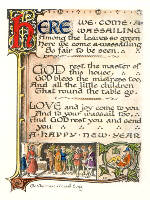 HERE WE COME A
WASSAILING
Among the leaves so green
Here we come a wassailing
So fair to be seen.
GOD rest the master of
this house,
God bless the mistress too,
And all the little children
That round the table go.
LOVE and joy come to you
And to your wassail too,
And God rest you and send
you
A HAPPY NEW YEAR